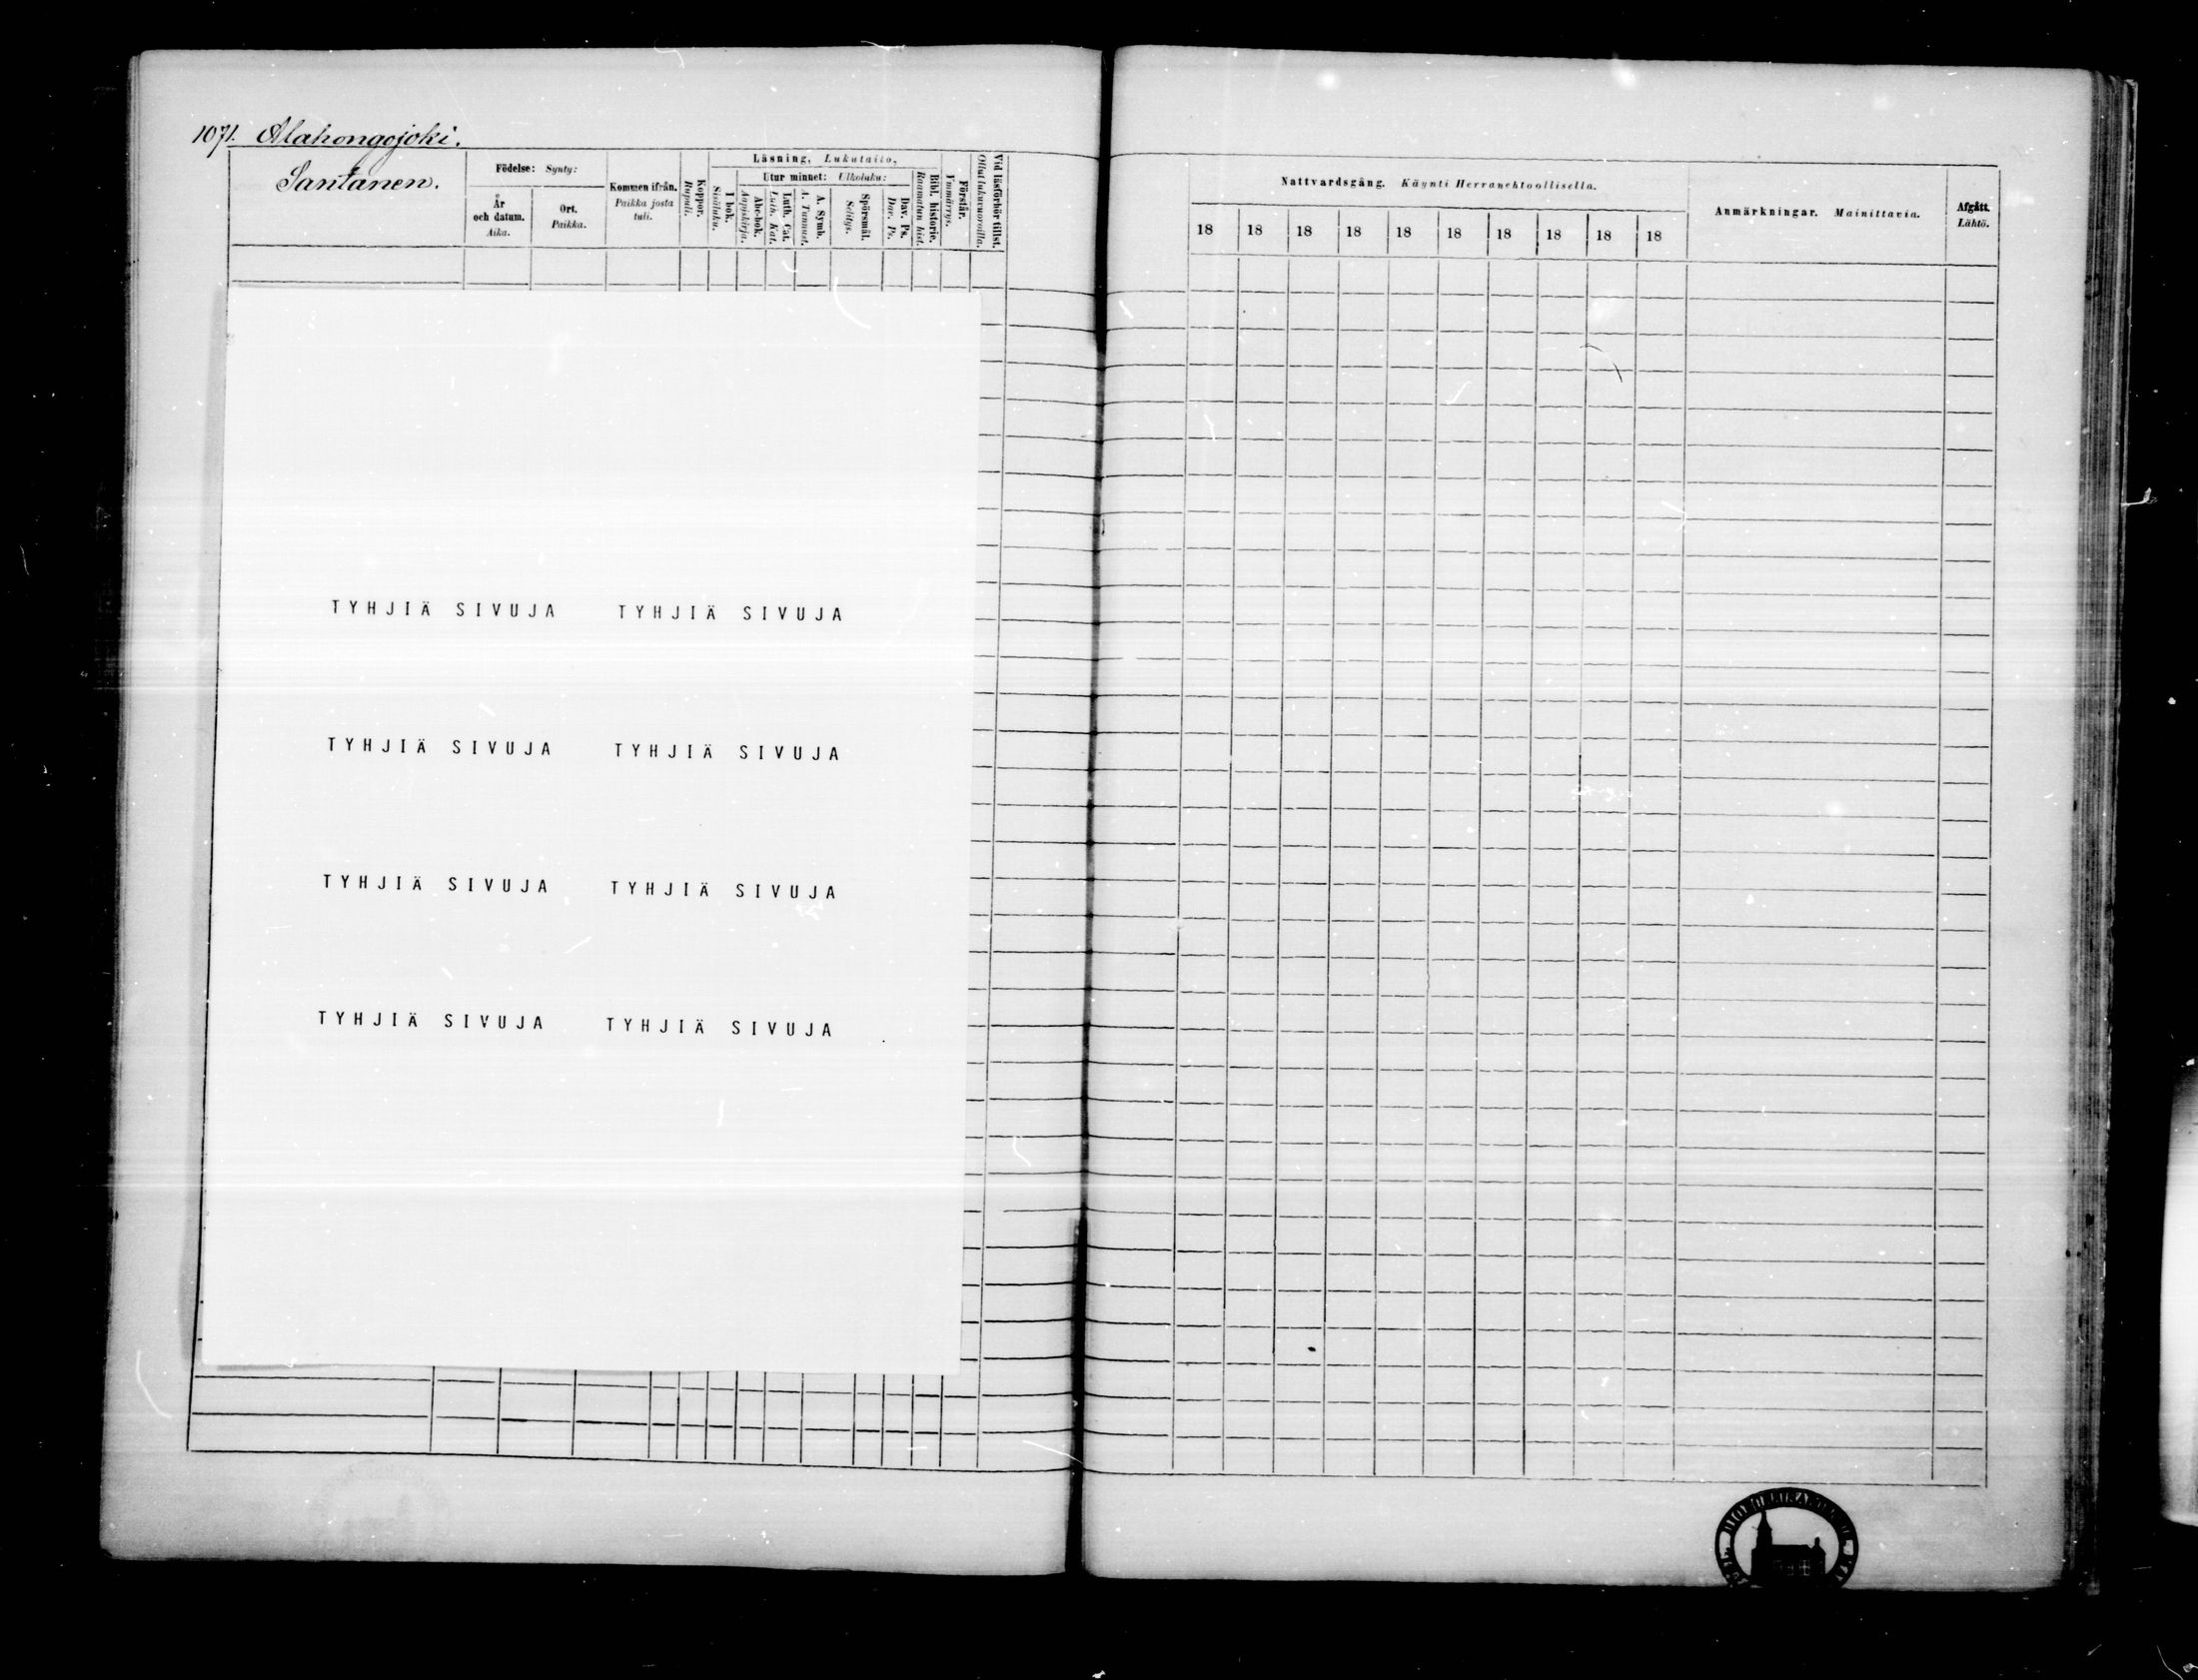 1071. Alahongojoki.
Santanen.
Födelse: Synty:
År
och datum.
Aika.
Ort.
Paikka.
Kommen ifrån.
Paikka josta
tuli.
Koppor.
Rupuli.
Läsning, Lukutaito,
I bok.
Sisäluku.
Utur minnet: Ulkoluku:
Abc-bok.
Aapiskirja.
Luth. Cat.
Luth. Kat.
A. Symb.
A. Tunnust.
Spörsmål.
Selitys.
Dav. Ps.
Dav. Ps.
Bibl. historie.
Raamatun hist.
Förstår.
Ymmärrys.
Vid läsförhör tillst.
Ollut lukuvuoroilla.
TYHJIÄ SIVUJA TYHJIÄ SIVUJA
TYHJIÄ SIVUJA TYHJIÄ SIVUJA
TYHJIÄ SIVUJA TYHJIÄ SIVUJA
TYHJIÄ SIVUJA TYHJIÄ SIVUJA
Nattvardsgång. Käynti Herranehtoollisella.
18 18 18 18 18 18 18 18 18 18
Anmärkningar. Mainittavia.
Afgått.
Lähtö.